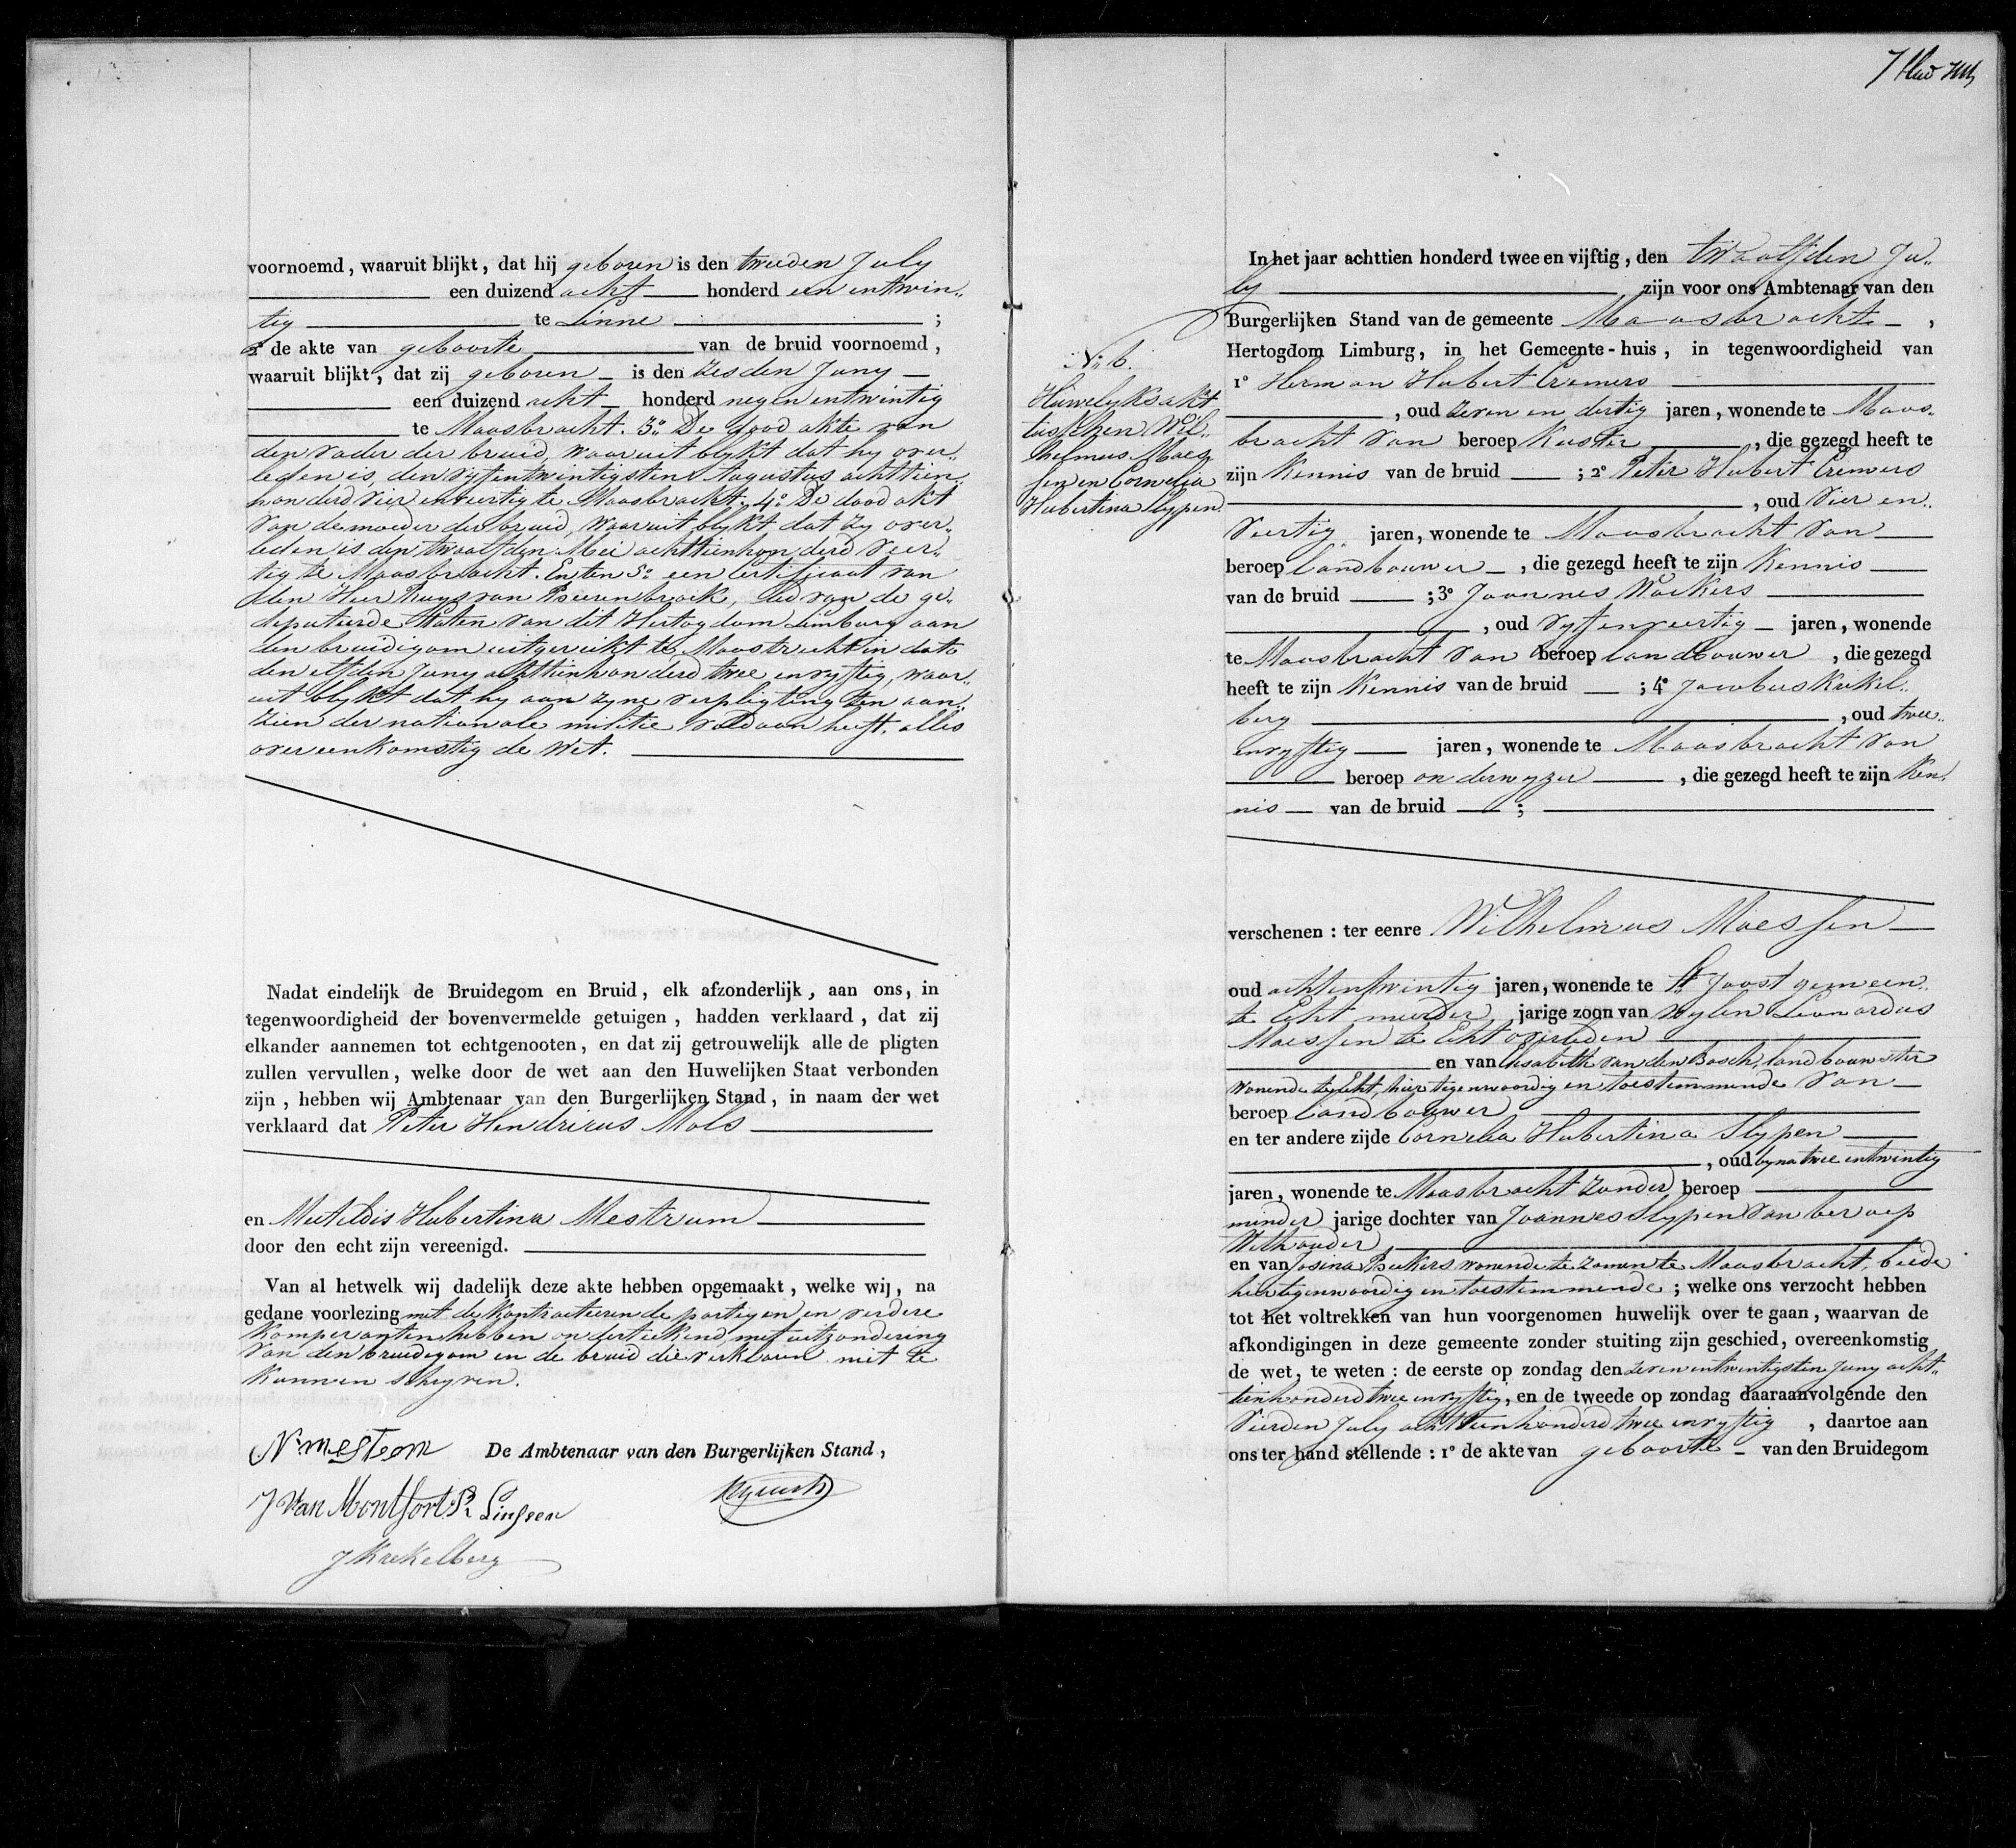 voornoemd, waaruit blijkt, dat hij geboren is den tweeden July
een duizend acht honderd een entwin„
tig te Linne ;
2° de akte van geboorte van de bruid voornoemd,
waaruit blijkt, dat zij geboren is den zesden Juny
een duizend acht honderd negen entwintig
te Maasbracht. 3° De dood akte van
den vader der bruid, waaruit blykt dat hy over„
leden is, den vyfentwintigsten Augustus achttien
honderd vier enveertig te Maasbracht. 4° De dood akt
van de moeder der bruid, waaruit blykt dat zy over„
leden is den twaalfden Mei achttienhonderd veer„
tig te Maasbracht. En ten 5° een Certificaat van
den Heer Ruys van Beerenbroek, Lid van de ge„
deputeerde Staten van dit Hertogdom Limburg aan
den bruidigom uitgereikt te Maastricht in dato
den elfden Juny achttienhonderd twee envyftig, waar„
uit blykt dat hy aan zyne verpligting ten aan„
zien der nationale militie voldaan heeft, alles
overeenkomstig de Wet.
Nadat eindelijk de Bruidegom en Bruid, elk afzonderlijk, aan ons, in
tegenwoordigheid der bovenvermelde getuigen, hadden verklaard, dat zij
elkander aannemen tot echtgenooten, en dat zij getrouwelijk alle de pligten
zullen vervullen, welke door de wet aan den Huwelijken Staat verbonden
zijn, hebben wij Ambtenaar van den Burgerlijken Stand, in naam der wet
verklaard dat Peter Hendricus Mols
en Mechtildis Hubertina Mestrum
door den echt zijn vereenigd.
Van al hetwelk wij dadelijk deze akte hebben opgemaakt, welke wij, na
gedane voorlezing met de kontracteerende partyen en verdere
komperanten hebben onderteekend, met uitzondering
van den bruidegom en de bruid die verklaren niet te
kunnen schryven.
De Ambtenaar van den Burgerlijken Stand,
J Van Montfort P. Linssen
J Krekelberg
7
In het jaar achttien honderd twee en vijftig, den twaalfden Ju„
ly zijn voor ons Ambtenaar van den
Burgerlijken Stand van de gemeente Maasbracht,
Hertogdom Limburg, in het Gemeente-huis, in tegenwoordigheid van
N° 6.
Huwelyksakt
tusschen Wil„
helmus Maes„
sen en Cornelia
Hubertina Slypen.
1° Herman Hubert Cremers
, oud zeven en dertig jaren, wonende te Maas„
bracht van beroep Kuster , die gezegd heeft te
zijn Kennis van de bruid ; 2° Peter Hubert Cremers
, oud Vier en„
veertig jaren, wonende te Maasbracht van
beroep landbouwer , die gezegd heeft te zijn Kennis
van de bruid ; 3° Joannes Wackers
, oud vyfenveertig jaren, wonende
te Maasbracht van beroep landbouwer , die gezegd
heeft te zijn Kennis van de bruid ; 4° Jacobus Krekel„
berg , oud twee„
envyftig jaren, wonende te Maasbracht van
beroep onderwyzer , die gezegd heeft te zijn Ken„
nis van de bruid ;
verschenen : ter eenre Wilhelmus Maessen
oud achtentwintig jaren, wonende te St Joost gemeen„
te Echt meerder jarige zoon van wylen Leonardus
Maessen te Echt overleden
en van Elisabeth van den Bosch, landbouwster
wonende te Echt, hier tegenwoordig en toestemmende van
beroep landbouwer
en ter andere zijde Cornelia Hubertina Slypen
, oud byna twee entwintig
jaren, wonende te Maasbracht zonder beroep
minder jarige dochter van Joannes Slypen van beroep
Wethouder
en van Josina Beekers wonende te zamen te Maasbracht, beide
hier tegenwoordig en toestemmende ; welke ons verzocht hebben
tot het voltrekken van hun voorgenomen huwelijk over te gaan, waarvan de
afkondigingen in deze gemeente zonder stuiting zijn geschied, overeenkomstig
de wet, te weten : de eerste op zondag den zeven entwintigsten Juny acht„
tienhonderd twee envyftig, en de tweede op zondag daaraanvolgende den
Vierden July achttienhonderd twee envyftig , daartoe aan
ons ter hand stellende : 1° de akte van geboorte van den Bruidegom